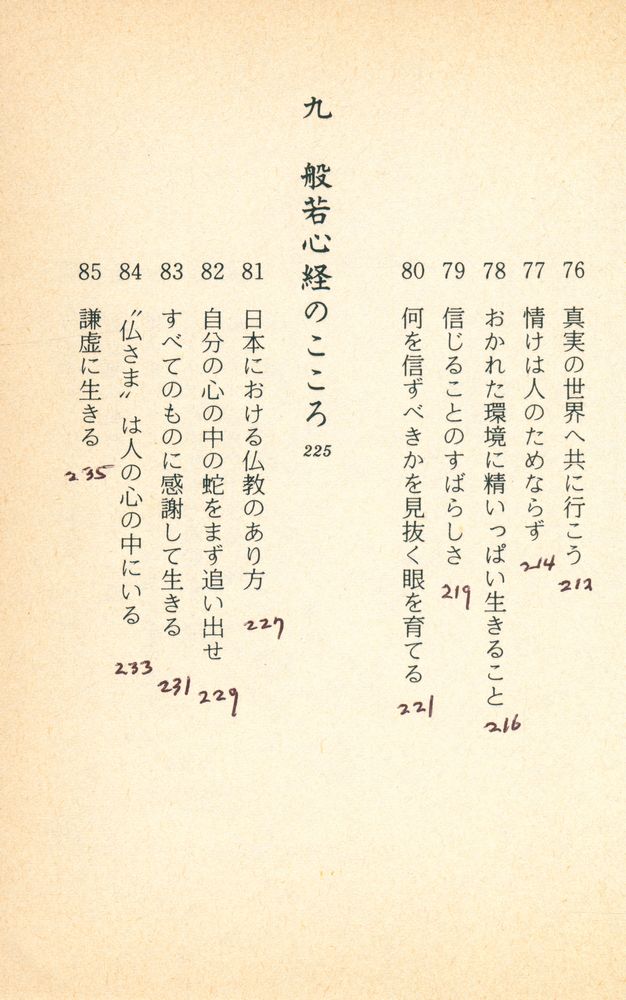 76 真実の世界へ共に行こう 212
77 情けは人のためならず 214
78 おかれた環境に精いっぱい生きること 216
79 信じることのすばらしさ 219
80 何を信ずべきかを見抜く眼を育てる 221
九 般若心経のこころ 225
81 日本における仏教のあり方 227
82 自分の心の中の蛇をまず追い出せ 229
83 すべてのものに感謝して生きる 231
84 〝仏さま〟は人の心の中にいる 233
85 謙虚に生きる 235